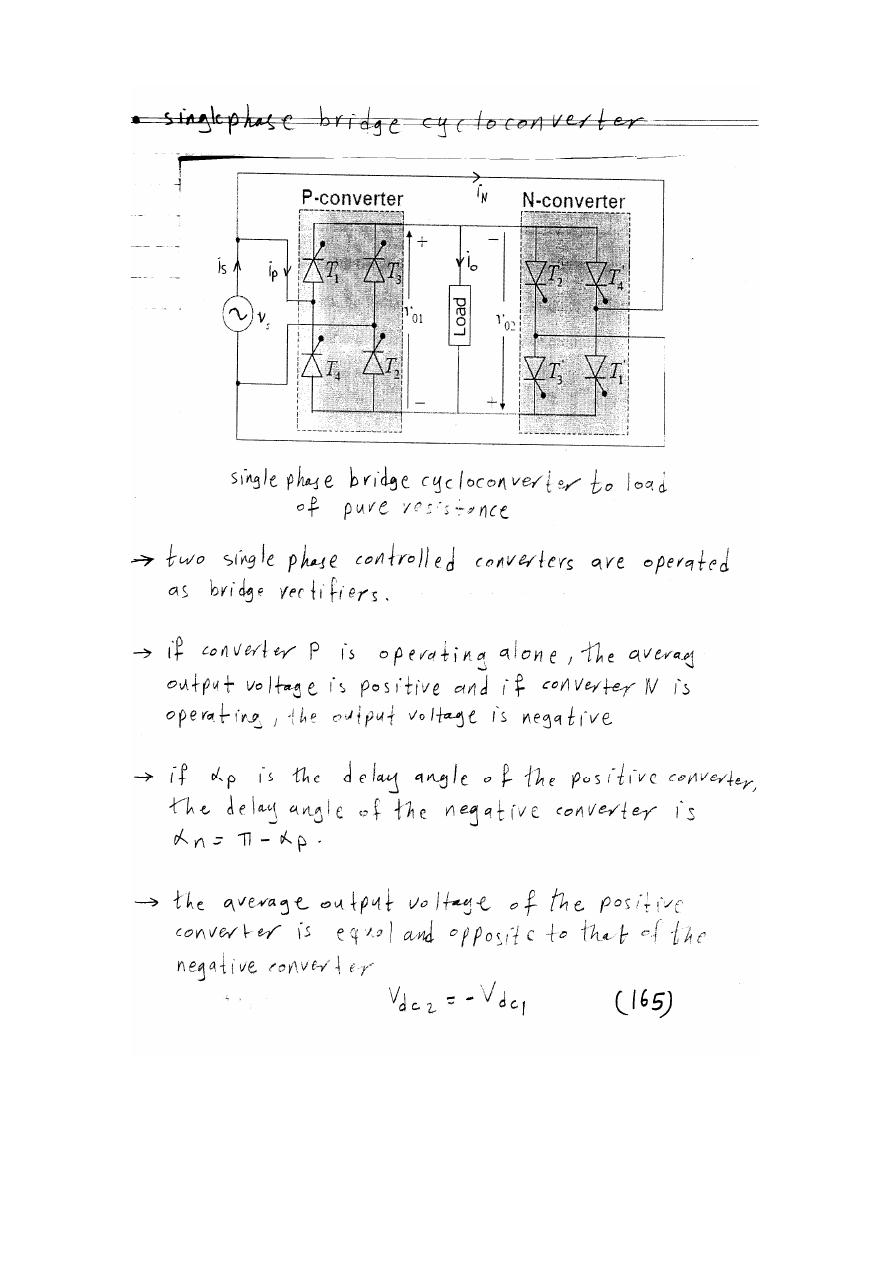 • single phase bridge cycloconverter
P-converter
i_N
N-converter
i_s
i_p
T_1
T_3
+
i_o
−
T_2'
T_4'
v_s
v_01
Load
v_02
T_4
T_2
T_3'
T_1'
−
+
single phase bridge cycloconverter to load
of pure resistance
→ two single phase controlled converters are operated
as bridge rectifiers.
→ if converter P is operating alone, the averag
output voltage is positive and if converter N is
operating, the output voltage is negative
→ if αp is the delay angle of the positive converter,
the delay angle of the negative converter is
αn = π - αp.
→ the average output voltage of the positive
converter is equal and opposite to that of the
negative converter
Vdc2 = - Vdc1 (165)